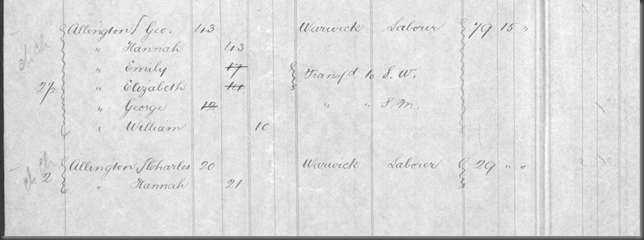 Allington Geo. 43 Warwick Labour 79 15 "
" Hannah 43
" Emily 17 Transf'd to S. W.
" Elizabeth
" George " " S. M.
" William 10
Allington Charles 20 Warwick Labour 29 " "
2 " Hannah 21